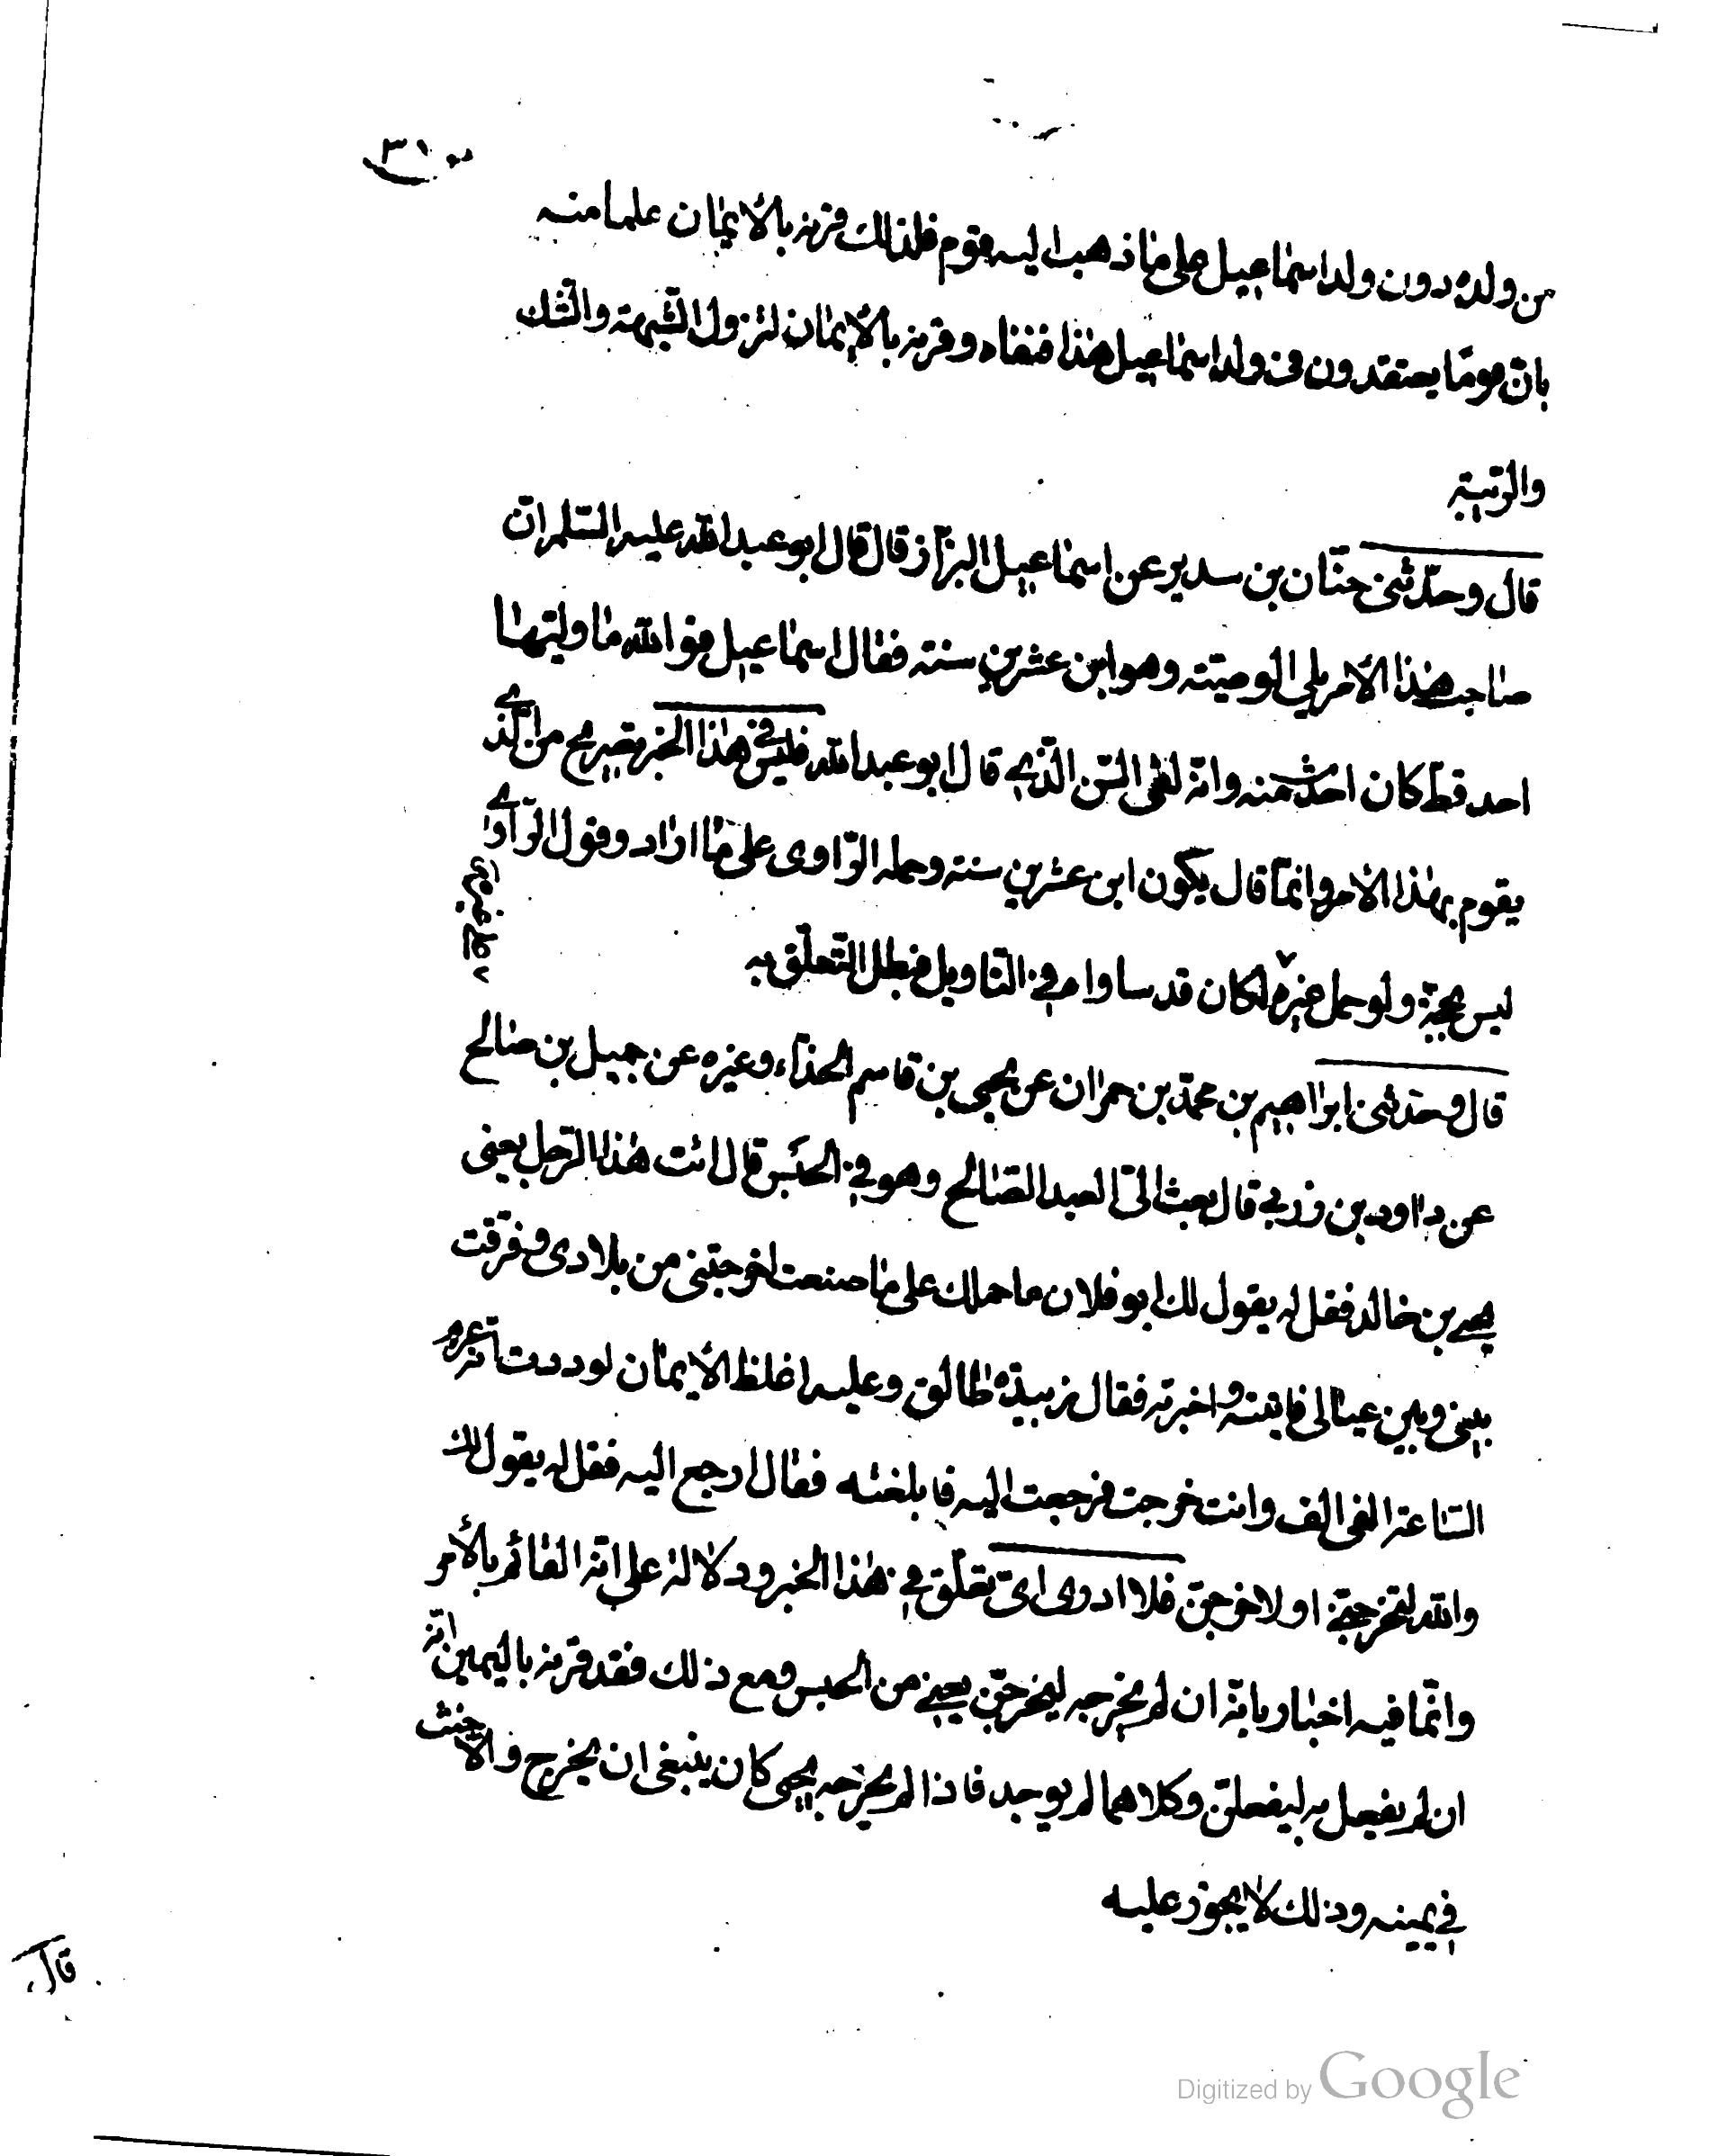 ٣١
من ولده دون ولد اسماعيل على ما ذهب اليه قوم فلذلك قرنه بالأيمان علما منه
بانّ قومًا يعتقدون في ولد اسماعيل هذا فنفاه وقرنه بالأيمان لتزول الشّبهة والشّك
والرّيبة
قال وحدّثني حنّان بن سدير عن اسماعيل البزّاز قال قال ابو عبد اللّه عليه السّلم انّ
صاحب هذا الأمر يلي الوصيّة وهو ابن عشرين سنة فقال اسماعيل فو اللّه ما وليها
احد قطّ كان احدث منه وانّه لفي السّن الّذي قال ابو عبد اللّه فليس في هذا الخبر تصريح من الّذي
يقوم بهذا الأمر وانّما قال يكون ابن عشرين سنة وحمله الرّاوي على ما اراد وقول الرّاوي
ليس بحجّة ولو حمل غيره على غيره لكان قد ساواه في التّاويل فبطل التّعلّق به
قال وحدّثني ابراهيم بن محمّد بن حمران عن يحيى بن قاسم الحذّاء وغيره عن جميل بن صالح
عن داود بن زربي قال بعث اليّ العبد الصّالح وهو في الحبس قال ائت هذا الرّجل يعني
يحيى بن خالد فقل له يقول لك ابو فلان ما حملك على ما صنعت اخرجتني من بلادي وفرّقت
بيني وبين عيالي فاتيته واخبرته فقال زبيدة طالق وعليه اغلظ الأيمان لوددت انّه غرم
السّاعة الفي الف وانت خرجت فرجعت اليه فابلغته فقال ارجع اليه فقل له يقول لك
واللّه لتخرجنّي او لاخرجنّ فلا ادري ايّ تعلّق في هذا الخبر ودلالة على انّه القائم بالأمر
وانّما فيه اخبار بانّه ان لم يخرجه ليخرجنّ يعني من الحبس ومع ذلك فقد قرنه باليمين انّه
ان لم يفعل به ليفعلنّ وكلاهما لم يوجد فاذا لم يخرجه يحيى كان ينبغي ان يخرج والّا حنث
في يمينه وذلك لا يجوز عليه
قال
Digitized by Google